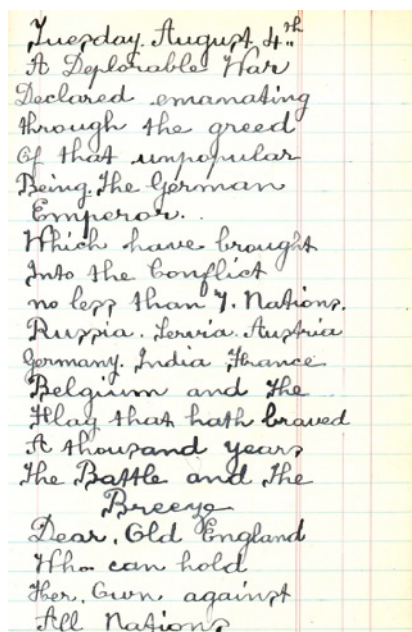 Tuesday. August 4.th
A Deplorable War
Declared emanating
through the greed
Of that unpopular
Being. The German
Emperor.
Which have brought
Into the Conflict
no less than 7. Nations.
Russia. Servia. Austria
Germany. India France
Belgium and the
Flag that hath braved
A thousand years
The Battle and The
Breeze
Dear. Old England
Who can hold
Her. Own against
All Nations